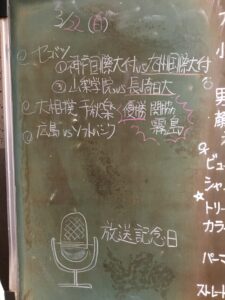 3/22 (日)
センバツ
①神戸国際大付 vs 九州国際大付
③山梨学院 vs 長崎日大
大相撲 千秋楽 優勝 関脇
霧島
広島 vs ソフトバンク
放送記念日
小
男
顔
ビュー
シャン
☆トリー
カラ
パーマ
ストレート